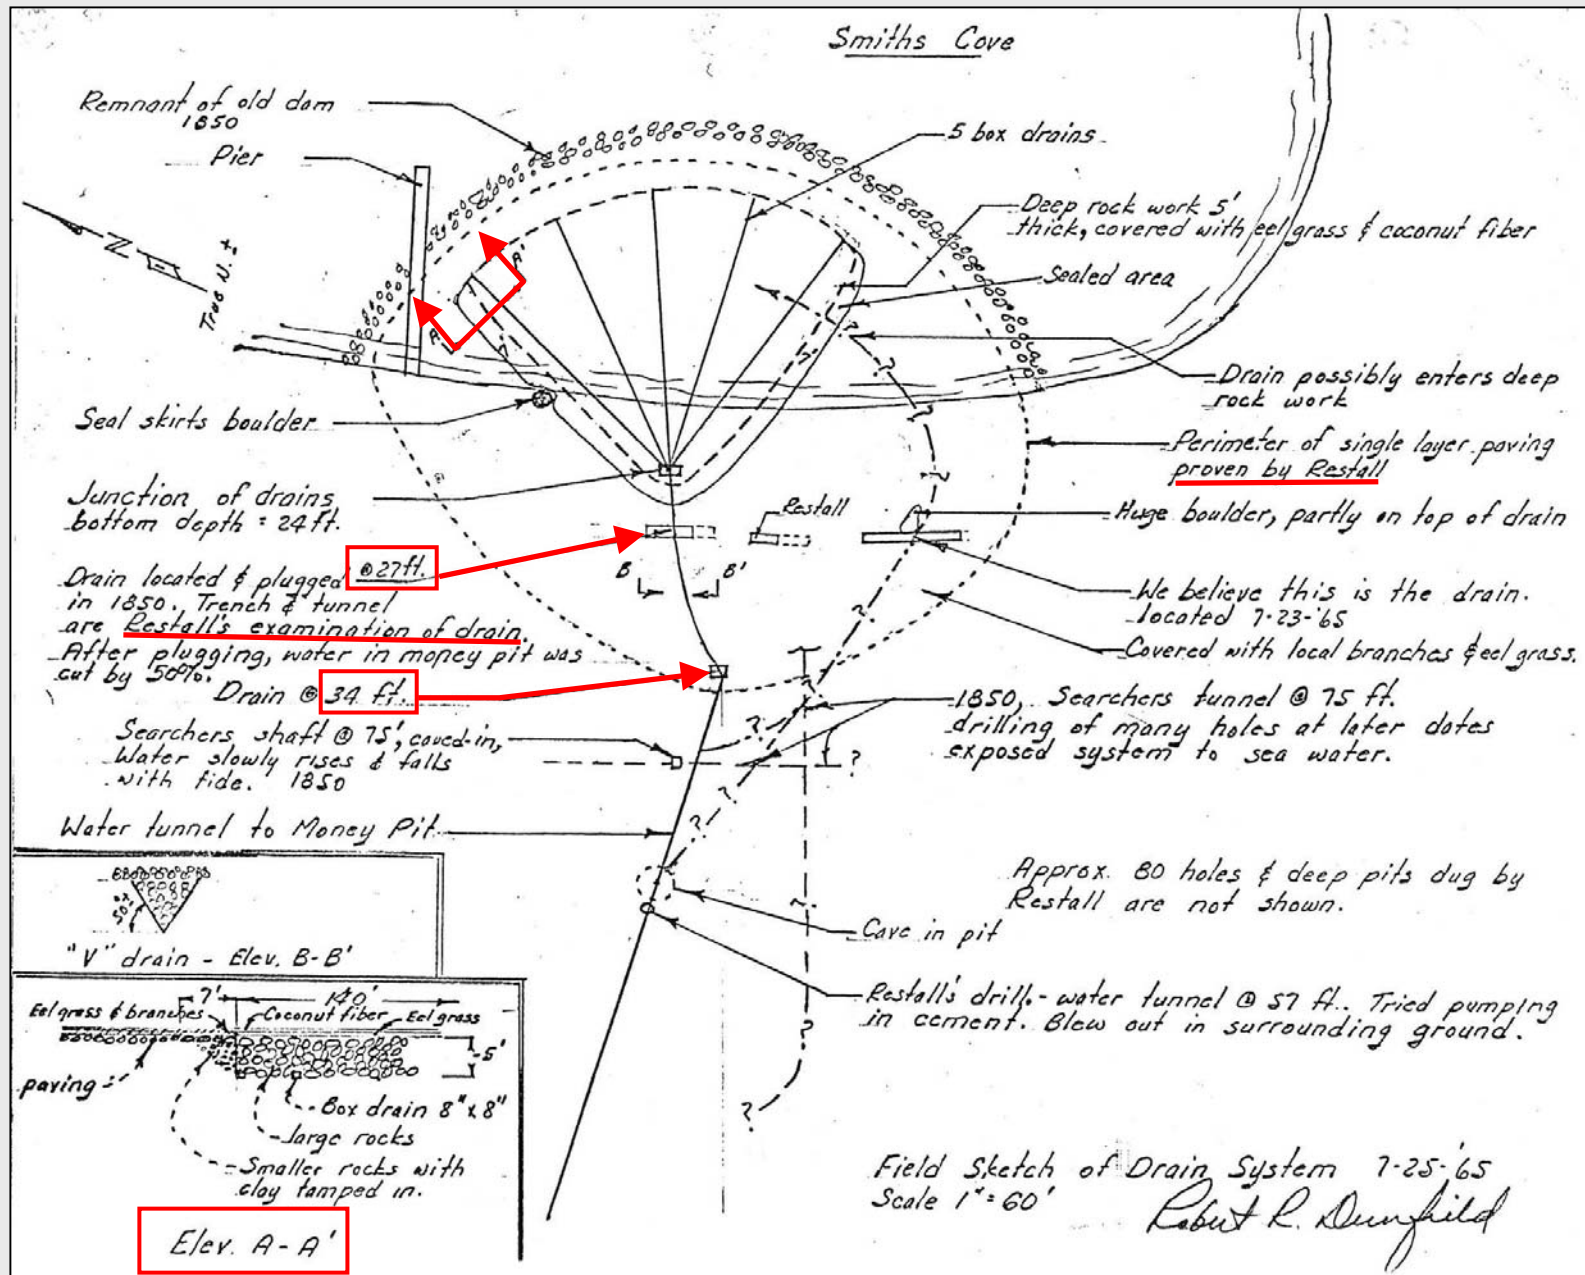 Smiths Cove
Remnant of old dam
1850
Pier
True N. ±
N
5 box drains
Deep rock work 5'
thick, covered with eel grass & coconut fiber
Sealed area
A'
A
Drain possibly enters deep
rock work
Seal skirts boulder
Perimeter of single layer paving
proven by Restall
Junction of drains
bottom depth = 24 ft.
Restall
Huge boulder, partly on top of drain
Drain located & plugged @ 27 ft.
in 1850. Trench & tunnel
are Restall's examination of drain.
After plugging, water in money pit was
cut by 50%.
B B'
We believe this is the drain.
located 7-23-'65
Covered with local branches & eel grass.
Drain @ 34 ft.
1850, Searchers tunnel @ 75 ft.
drilling of many holes at later dates
exposed system to sea water.
Searchers shaft @ 75', caved-in,
Water slowly rises & falls
with tide. 1850
?
?
?
?
?
?
?
?
?
?
?
Water tunnel to Money Pit
Approx. 80 holes & deep pits dug by
Restall are not shown.
50°±
"V" drain - Elev. B-B'
Cave in pit
Restall's drill - water tunnel @ 57 ft.. Tried pumping
in cement. Blew out in surrounding ground.
7' 140'
Eel grass & branches Coconut fiber Eel grass
5'
paving
Box drain 8" x 8"
large rocks
Smaller rocks with
clay tamped in.
Elev. A-A'
Field Sketch of Drain System 7-25-'65
Scale 1" = 60'
Robert R. Dunfield